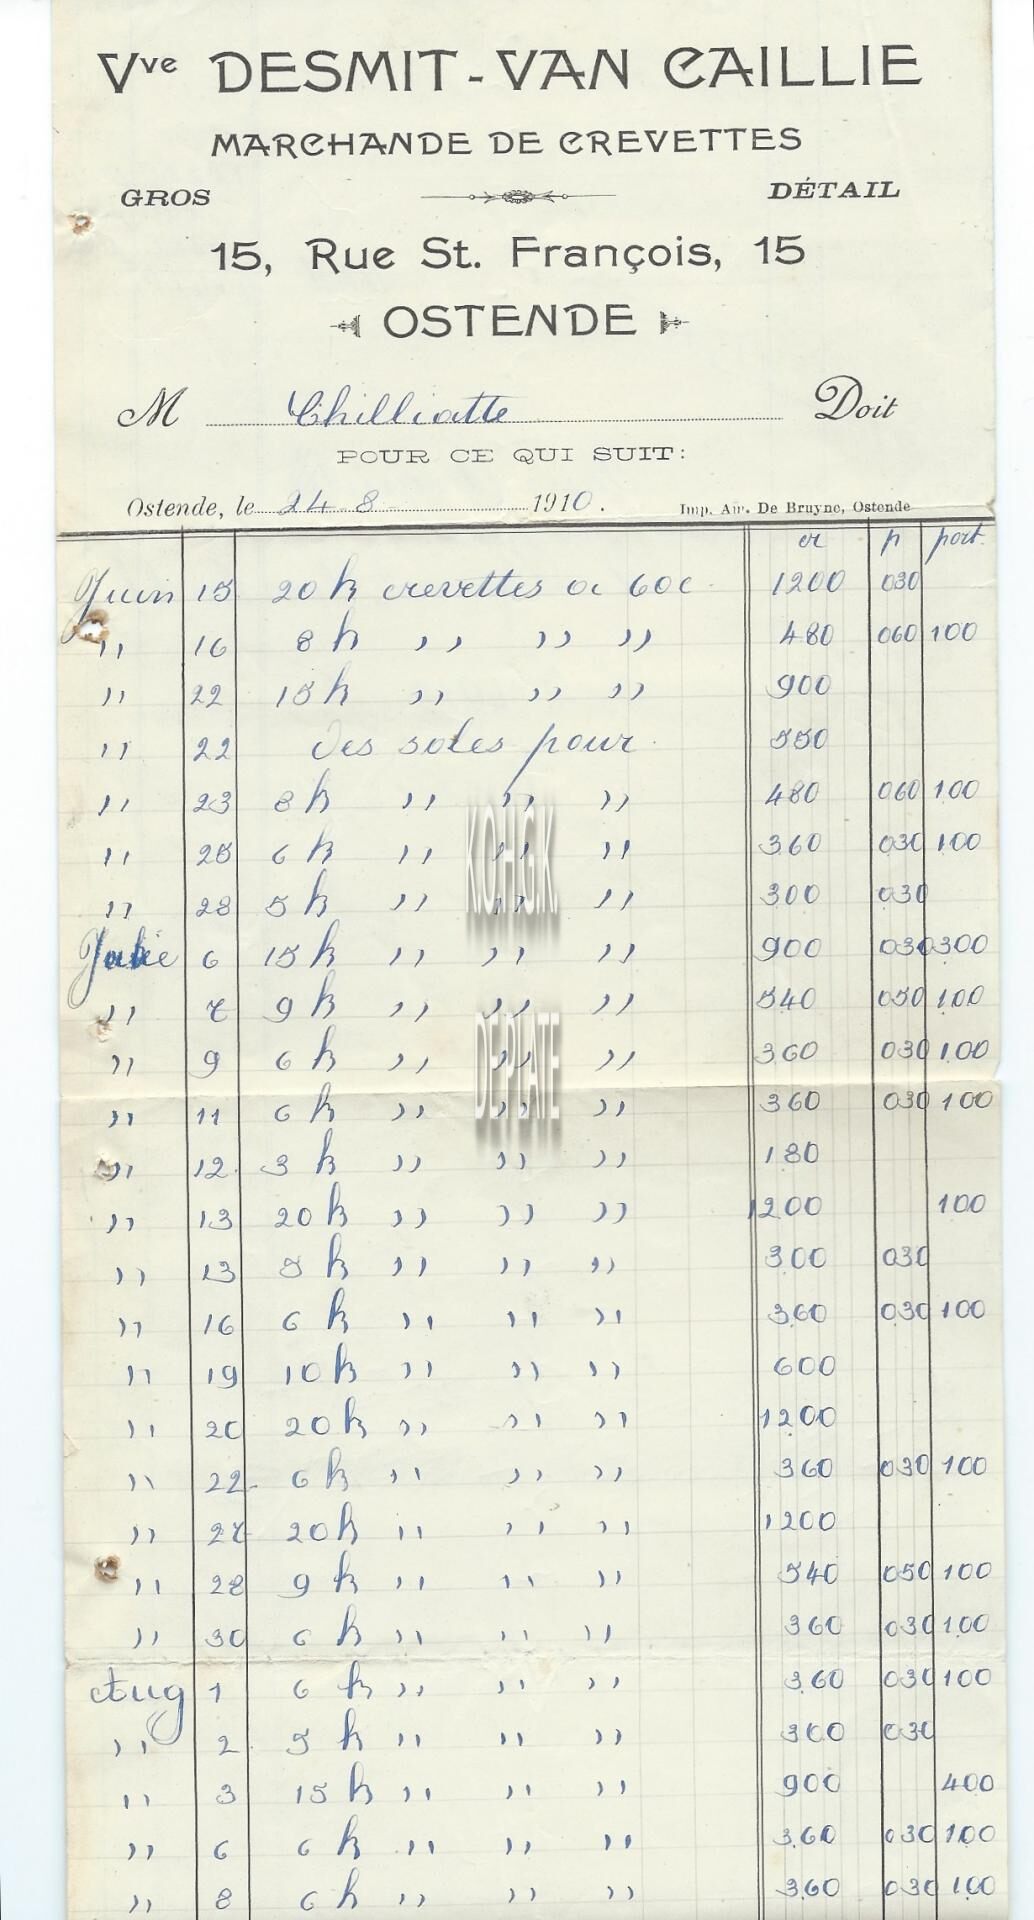 Vve DESMIT-VAN CAILLIE
MARCHANDE DE CREVETTES
GROS DÉTAIL
15, Rue St. François, 15
OSTENDE
M Chilliatte Doit
POUR CE QUI SUIT:
Ostende, le 24-8 1910. Imp. Aw. De Bruyne, Ostende
cr p port.
Juin 15 20 k crevettes a 60 c 1200 030
,, 16 8 k ,, ,, ,, 480 060 100
,, 22 15 k ,, ,, ,, 900
,, 22 des soles pour 550
,, 23 8 k ,, ,, ,, 480 060 100
,, 25 6 k ,, ,, ,, 360 030 100
,, 28 5 k ,, ,, ,, 300 030
6 15 k ,, ,, ,, 900 030 300
,, 7 9 k ,, ,, ,, 540 050 100
,, 9 6 k ,, ,, ,, 360 030 100
,, 11 6 k ,, ,, ,, 360 030 100
,, 12 3 k ,, ,, ,, 180
,, 13 20 k ,, ,, ,, 1200 100
,, 13 5 k ,, ,, ,, 300 030
,, 16 6 k ,, ,, ,, 360 030 100
,, 19 10 k ,, ,, ,, 600
,, 20 20 k ,, ,, ,, 1200
,, 22 6 k ,, ,, ,, 360 030 100
,, 27 20 k ,, ,, ,, 1200
,, 28 9 k ,, ,, ,, 540 050 100
,, 30 6 k ,, ,, ,, 360 030 100
Aug 1 6 k ,, ,, ,, 360 030 100
,, 2 5 k ,, ,, ,, 300 030
,, 3 15 k ,, ,, ,, 900 400
,, 6 6 k ,, ,, ,, 360 030 100
,, 8 6 k ,, ,, ,, 360 030 100
K.O.H.G.K.
DE PLATE